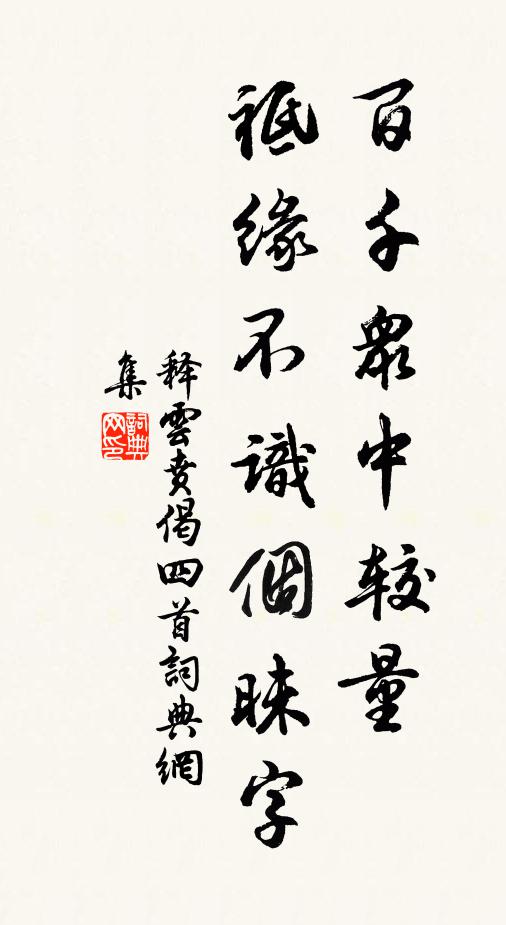 百千衆中較量
祗緣不識個昧字
释雲賁偈四首詞典網
集
詞典
网印